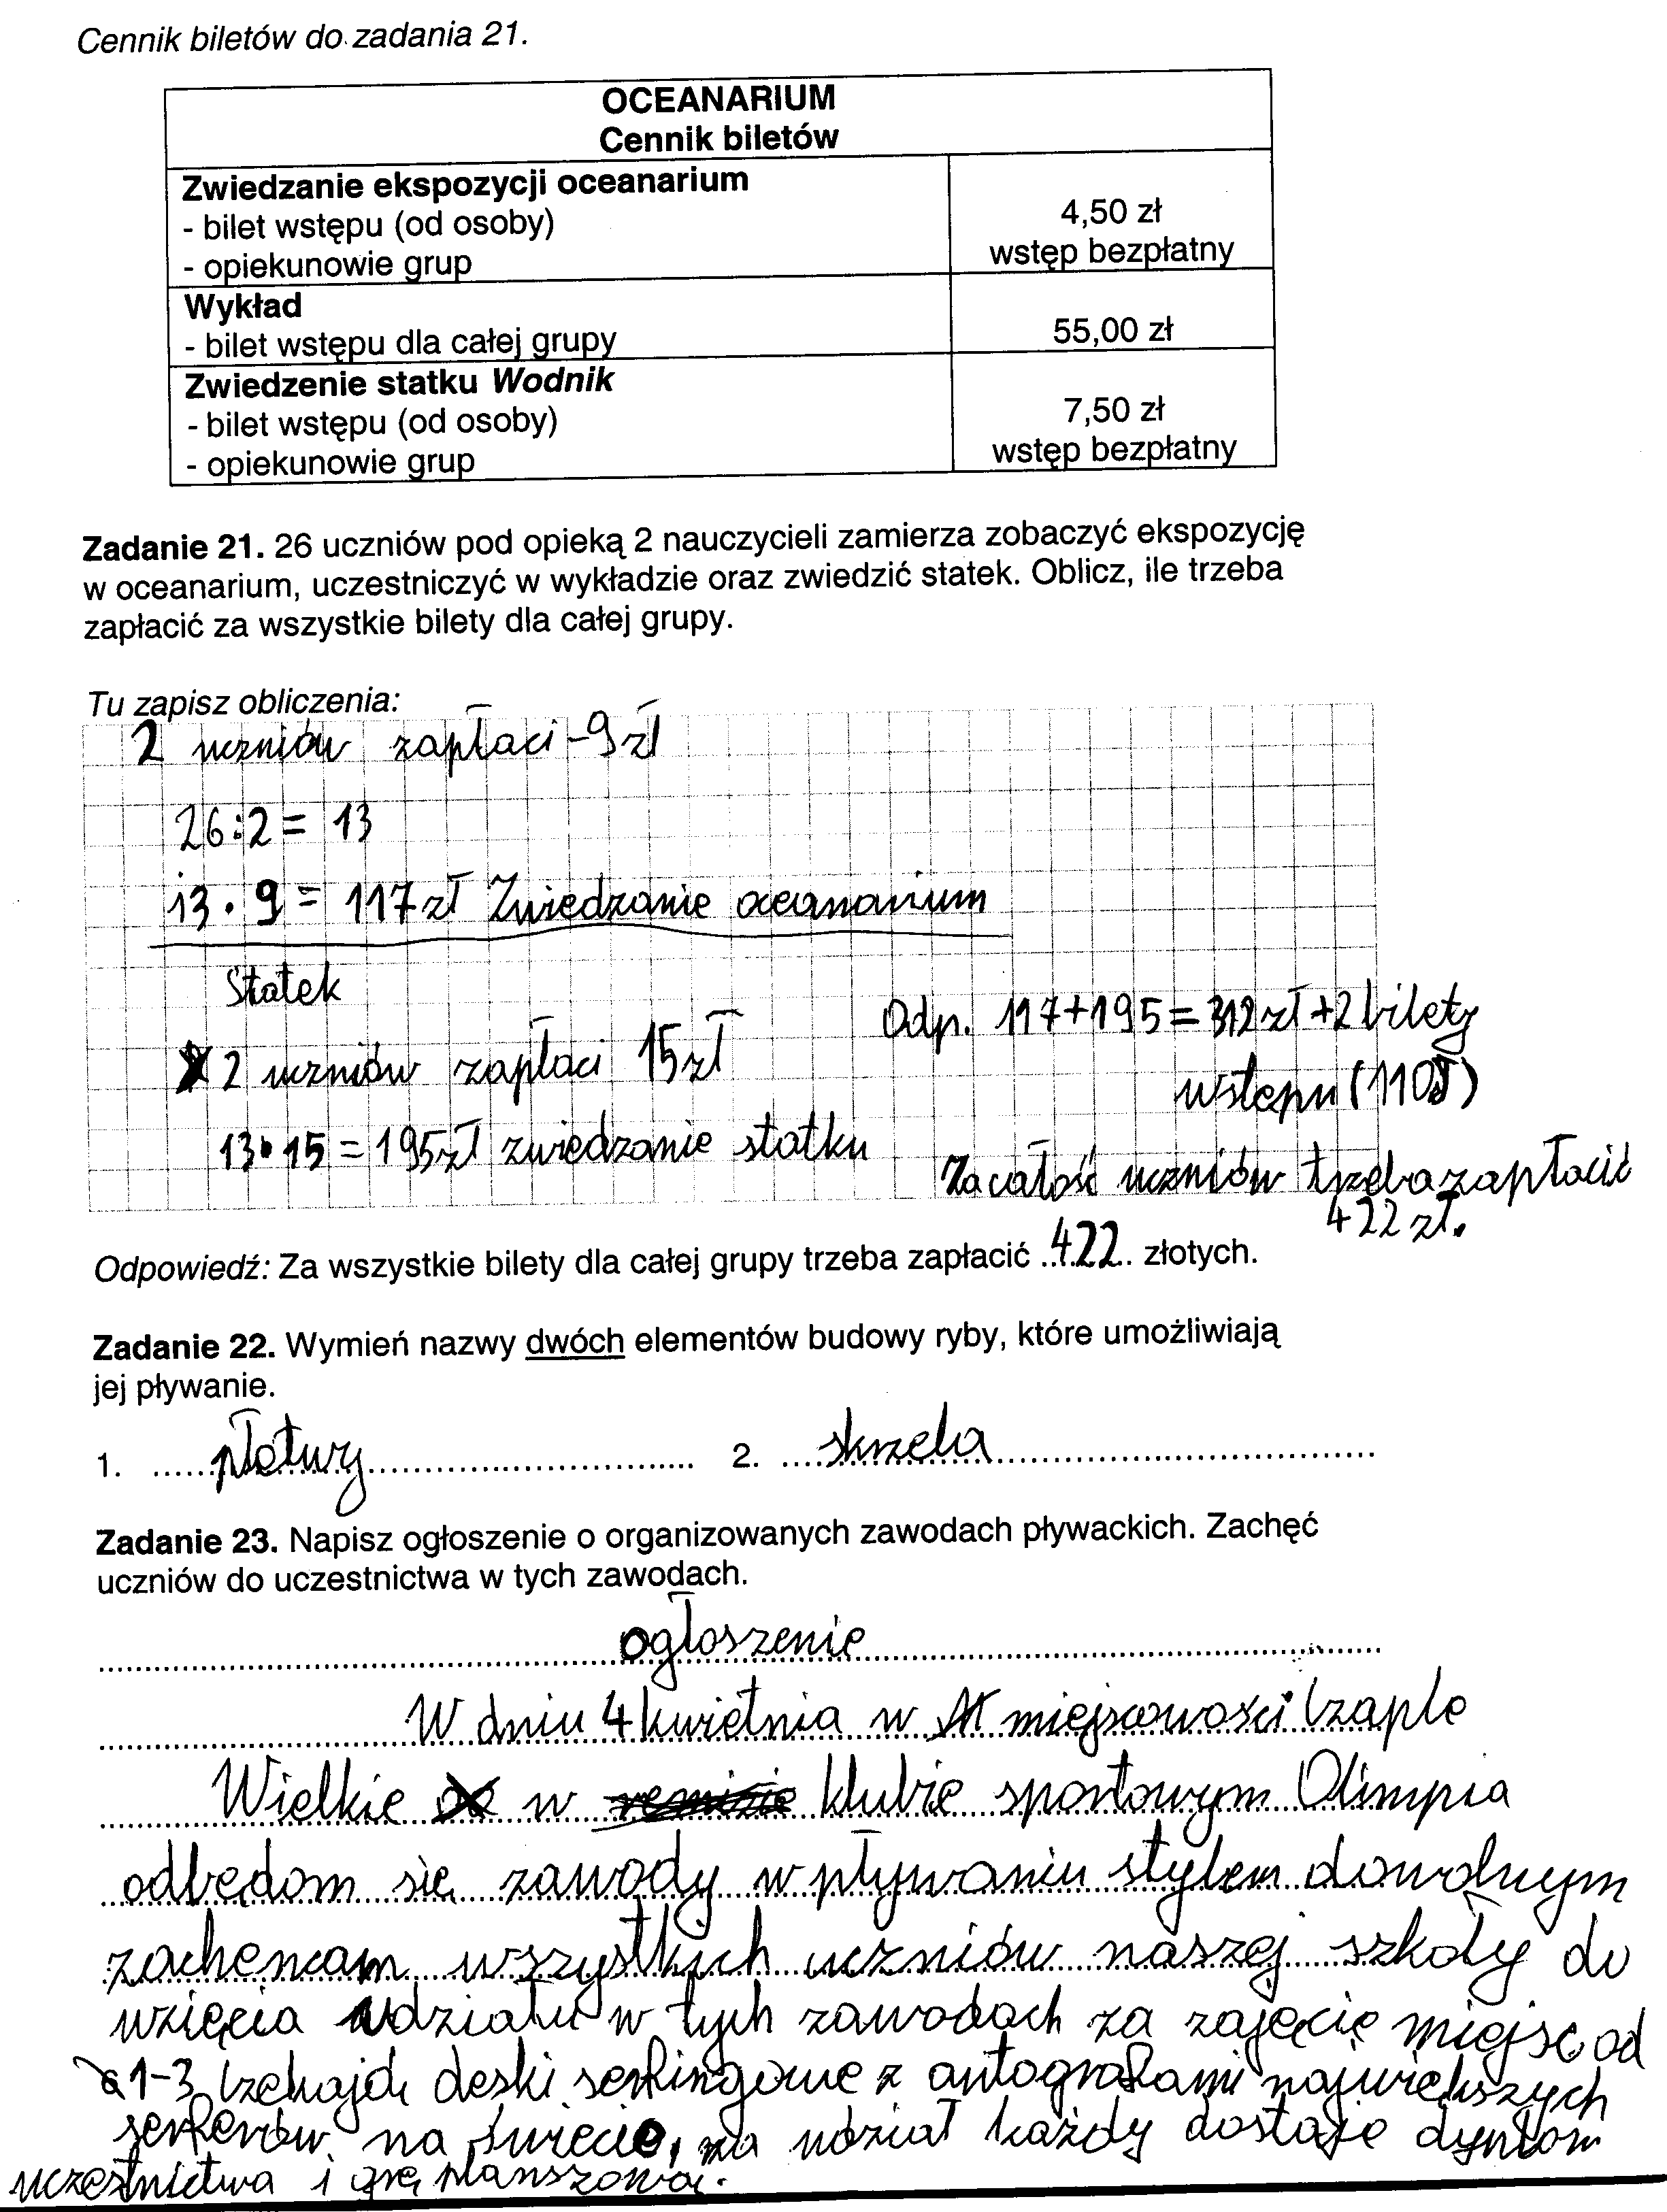 Cennik biletów do zadania 21.
OCEANARIUM
Cennik biletów
Zwiedzanie ekspozycji oceanarium
- bilet wstępu (od osoby) 4,50 zł
- opiekunowie grup wstęp bezpłatny
Wykład
- bilet wstępu dla całej grupy 55,00 zł
Zwiedzenie statku Wodnik
- bilet wstępu (od osoby) 7,50 zł
- opiekunowie grup wstęp bezpłatny
Zadanie 21. 26 uczniów pod opieką 2 nauczycieli zamierza zobaczyć ekspozycję
w oceanarium, uczestniczyć w wykładzie oraz zwiedzić statek. Oblicz, ile trzeba
zapłacić za wszystkie bilety dla całej grupy.
Tu zapisz obliczenia:
2 uczniów zapłaci - 9 zł
26:2 = 13
13 · 9 = 117 zł Zwiedzanie oceanarium
Statek
2 uczniów zapłaci 15 zł
13 · 15 = 195 zł zwiedzanie statku
Odp. 117+195 = 312 zł + 2 bilety
wstępu (110)
Za całość uczniów trzeba zapłacić
422 zł.
Odpowiedź: Za wszystkie bilety dla całej grupy trzeba zapłacić ..422.. złotych.
Zadanie 22. Wymień nazwy dwóch elementów budowy ryby, które umożliwiają
jej pływanie.
1. płetwy 2. skrzela
Zadanie 23. Napisz ogłoszenie o organizowanych zawodach pływackich. Zachęć
uczniów do uczestnictwa w tych zawodach.
ogłoszenie
W dniu 4 kwietnia w miejscowości Czaple
Wielkie w klubie sportowym Olimpia
odbędom się zawody w pływaniu stylem dowolnym
zachencam wszystkich uczniów naszej szkoły do
wzięcia udziału w tych zawodach za zajęcie miejsc od
1-3 czekają deski serfingowe z autografami najwiekszych
serferów na świecie, za udział każdy dostaje dyplom
uczestnictwa i grę planszową.